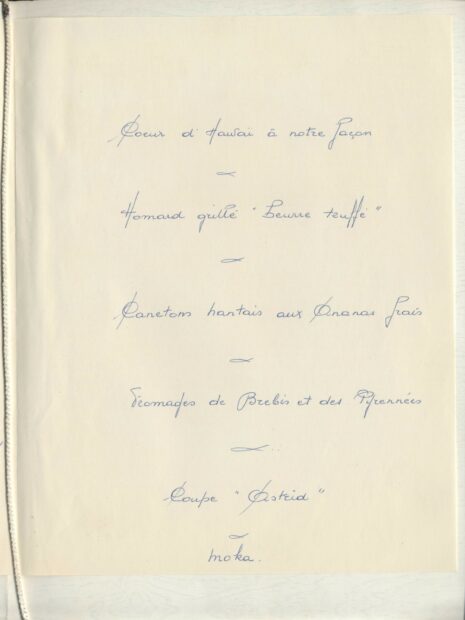 Coeur d'Hawai à notre façon
Homard grillé "Beurre truffé"
Canetons nantais aux Ananas frais
Fromages de Brebis et des Pyrennées
Coupe "Astrid"
moka.